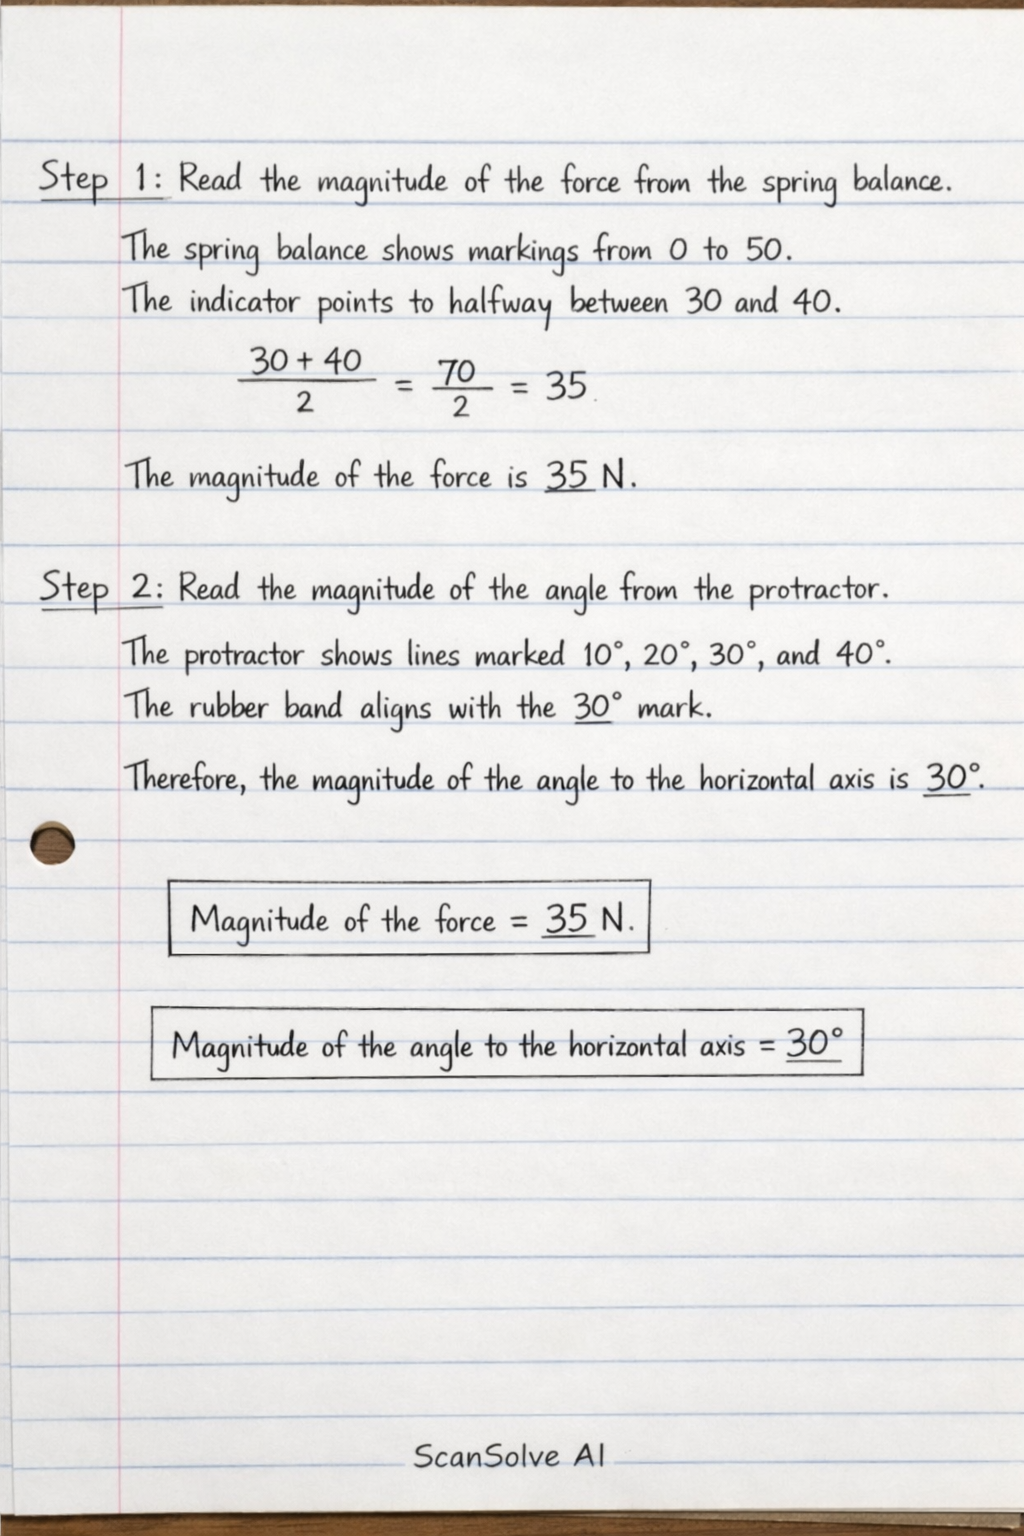 Step 1: Read the magnitude of the force from the spring balance.
The spring balance shows markings from 0 to 50.
The indicator points to halfway between 30 and 40.
30 + 40 / 2 = 70 / 2 = 35
The magnitude of the force is 35 N.
Step 2: Read the magnitude of the angle from the protractor.
The protractor shows lines marked 10°, 20°, 30°, and 40°.
The rubber band aligns with the 30° mark.
Therefore, the magnitude of the angle to the horizontal axis is 30°.
Magnitude of the force = 35 N.
Magnitude of the angle to the horizontal axis = 30°
ScanSolve AI